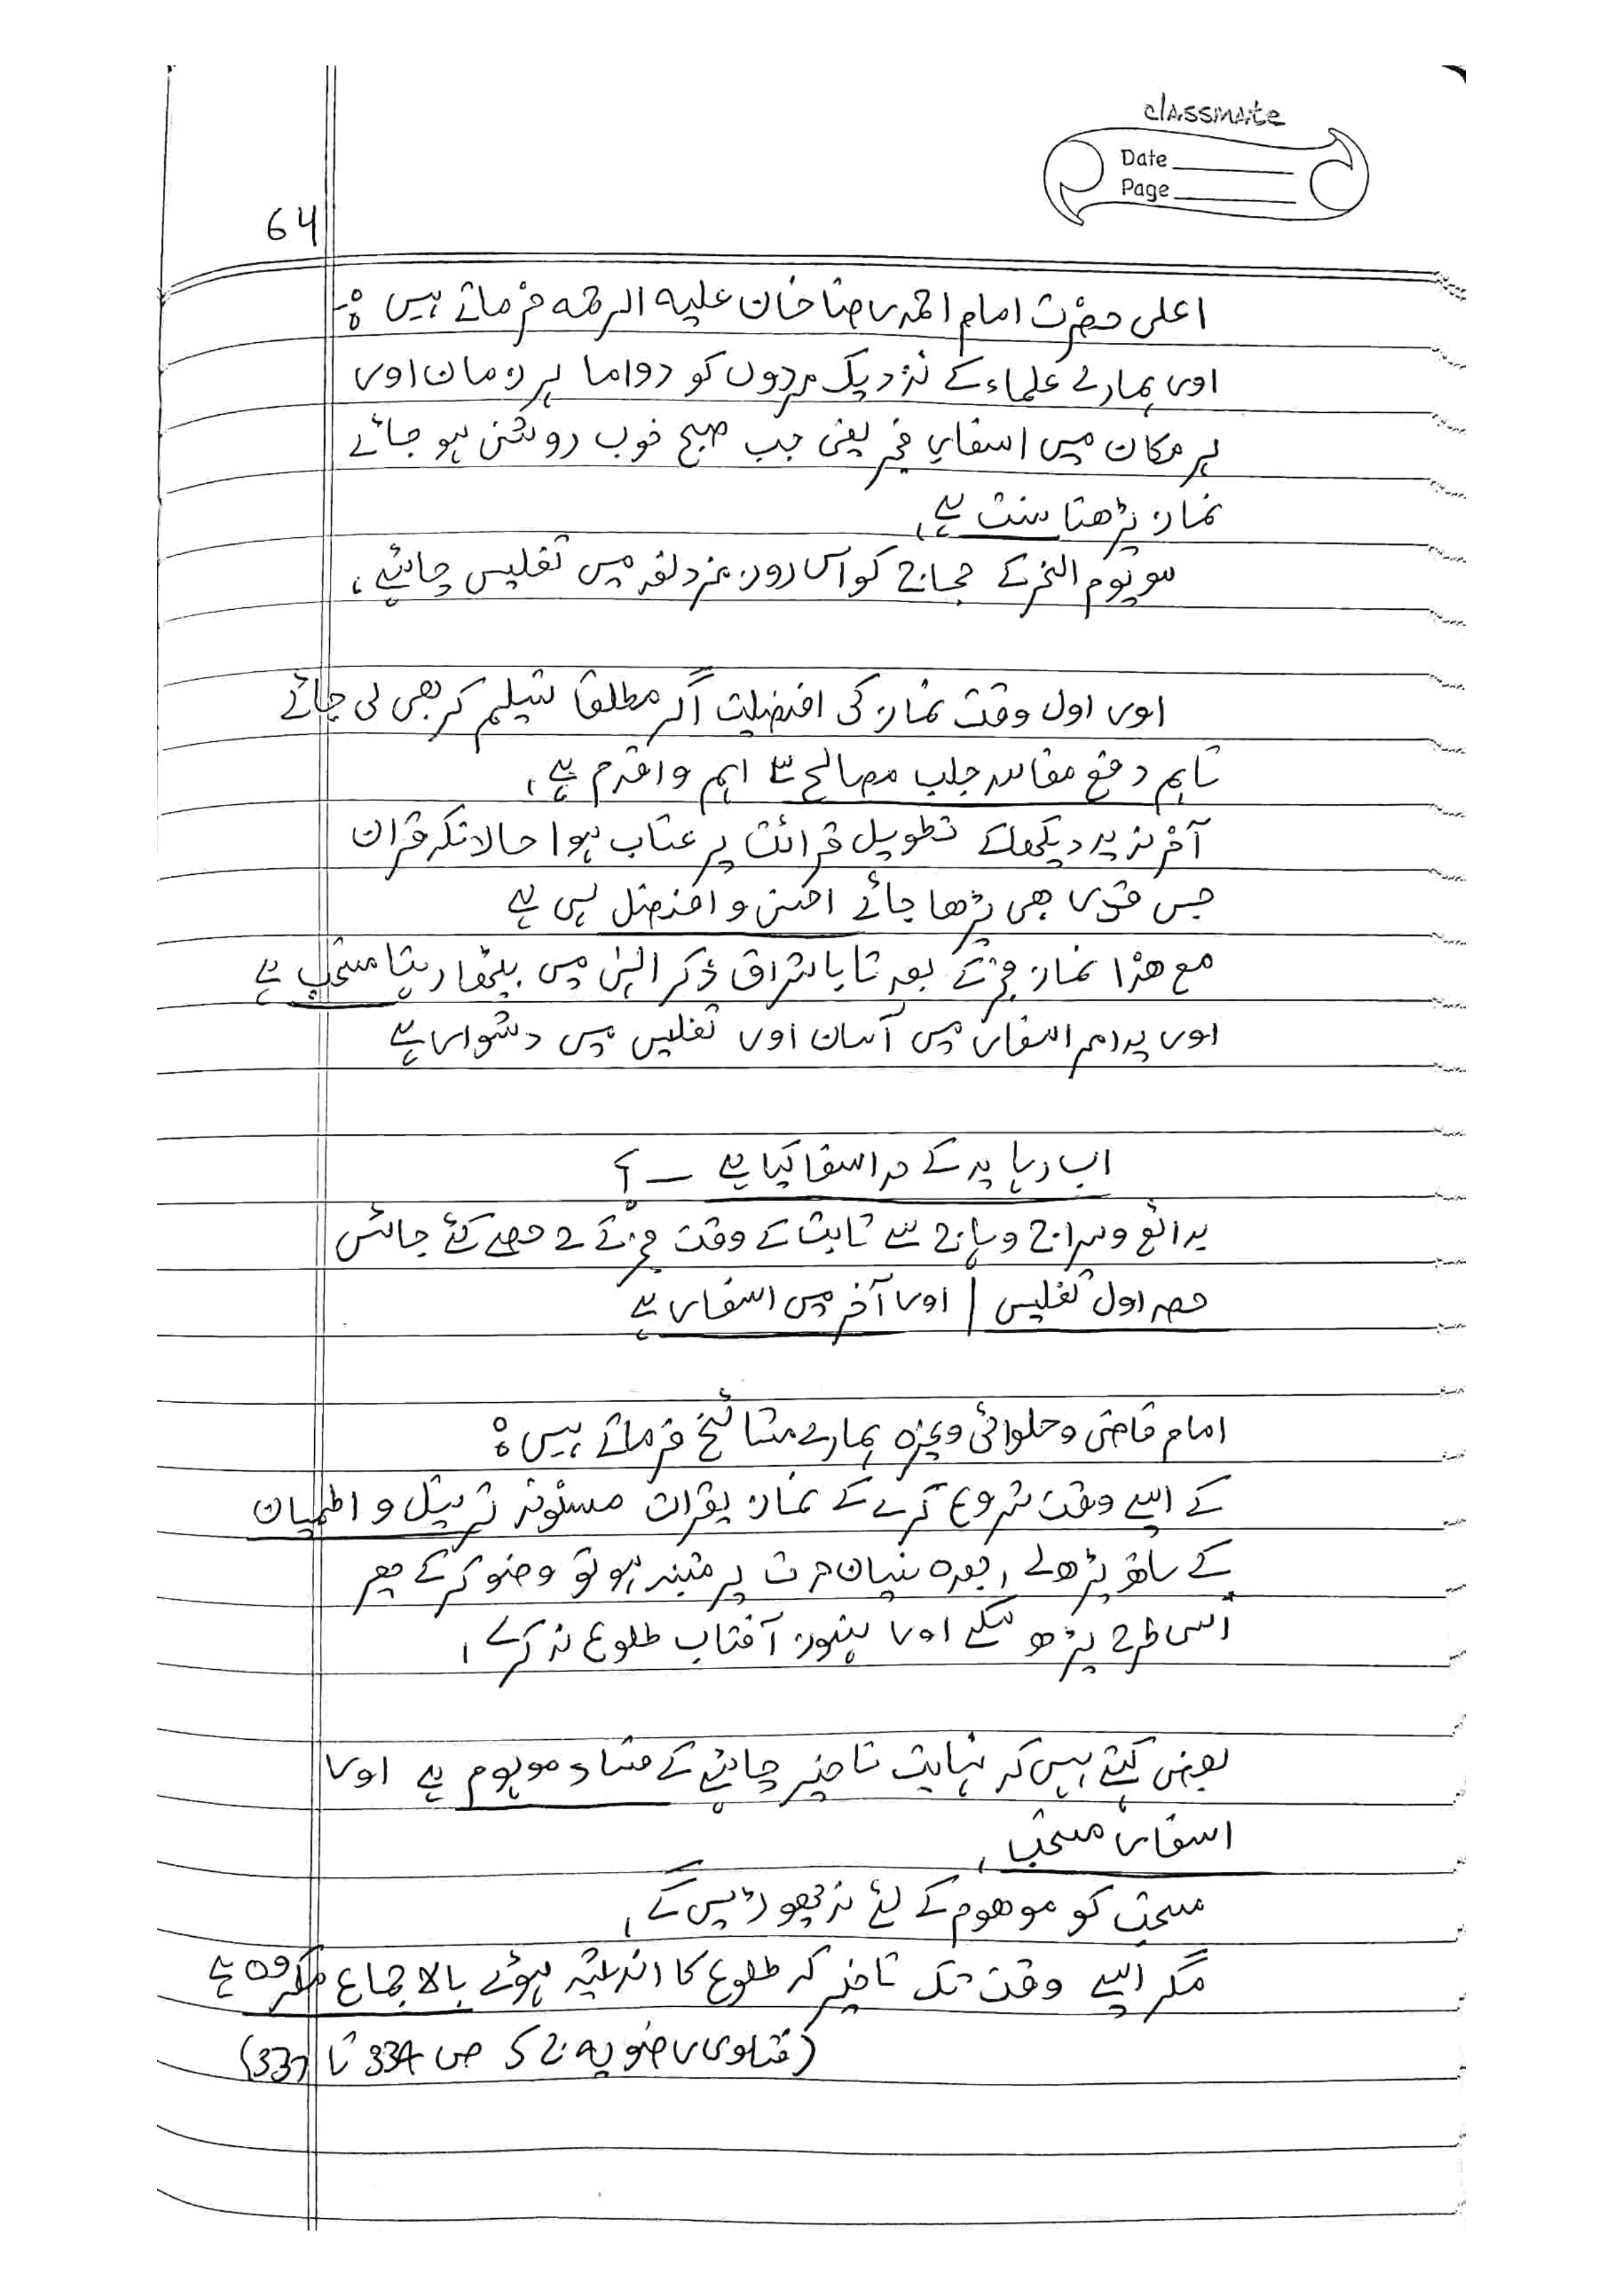 classmate
Date
Page
64
اعلی حضرت امام احمد رضا خان علیہ الرحمہ فرماتے ہیں :-
اور ہمارے علماء کے نزدیک مردوں کو دواما ہر زمان اور
ہر مکان میں اسفارِ فجر یعنی جب صبح خوب روشن ہو جائے
نماز پڑھنا سنت ہے،
سو یوم النحر کے حجاج کو اس روز مزدلفہ میں تغلیس چاہئے،
اور اول وقت نماز کی افضلیت اگر مطلقا تسلیم کر بھی لی جائے
تاہم دفع مفاسد جلب مصالح سے اہم و اقدم ہے،
آخر نہ دیکھا کے تطویل قرائت پر عتاب ہوا حالانکہ قران
جس قدر بھی پڑھا جائے احسن و افضل ہی ہے
مع ھذا نماز فجر کے بعد تا باشراق ذکر الہی میں بیٹھا رہنا مستحب ہے
اور یہ امر اسفار میں آسان اور تغلیس میں دشوار ہے
اب رہا یہ کے حد اسفا کیا ہے ـ ؟
بدائع و سراج وہاج سے ثابت کے وقت فجر کے 2 حصے کئے جائیں
حصہ اول تغلیس | اور آخر میں اسفار ہے
امام قاضی و حلوائی وغیرہ ہمارے مشائخ فرماتے ہیں :
کے ایسے وقت شروع کرے کے نماز بقرات مسنونہ ترتیل و اطمیان
کے ساتھ پڑھ لے، بعدہ نسیان حدث پر متنبہ ہو تو وضو کر کے پھر
اسی طرح پڑھ سکے اور ہنوز آفتاب طلوع نہ کرے،
بعض کہتے ہیں کہ نہایت تاخیر چاہئے کے فساد موہوم ہے اور
اسفار مستحب،
مستحب کو موھوم کے لئے نہ چھوڑیں گے،
مگر ایسے وقت تک تاخیر کہ طلوع کا اندیشہ ہوئے بالاجماع مکروہ ہے
(فتاوی رضویہ ج 5 ص 334 تا 337)